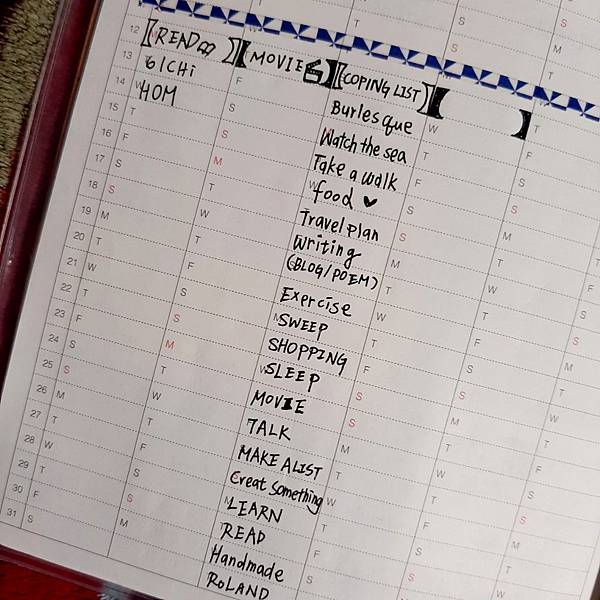 12
13
14
15
16
17
18
19
20
21
22
23
24
25
26
27
28
29
30
31
【READ】
61CHi
HOM
T
F
S
S
M
T
W
T
F
S
S
M
T
W
T
F
S
【MOVIE】
F
S
S
M
T
W
T
F
S
S
M
T
W
T
F
S
S
M
【COPING LIST】
Burlesque
Watch the sea
Take a walk
food ♥
Travel plan
Writing
(BLOG/POEM)
Exercise
SWEEP
SHOPPING
SLEEP
MOVIE
TALK
MAKE A LIST
Creat Something
LEARN
READ
Handmade
RoLAND
【 】
W
T
F
S
S
M
T
W
T
F
S
S
M
T
W
T
F
S
T
F
S
S
M
T
W
T
F
S
S
M
T
W
T
F
S
S